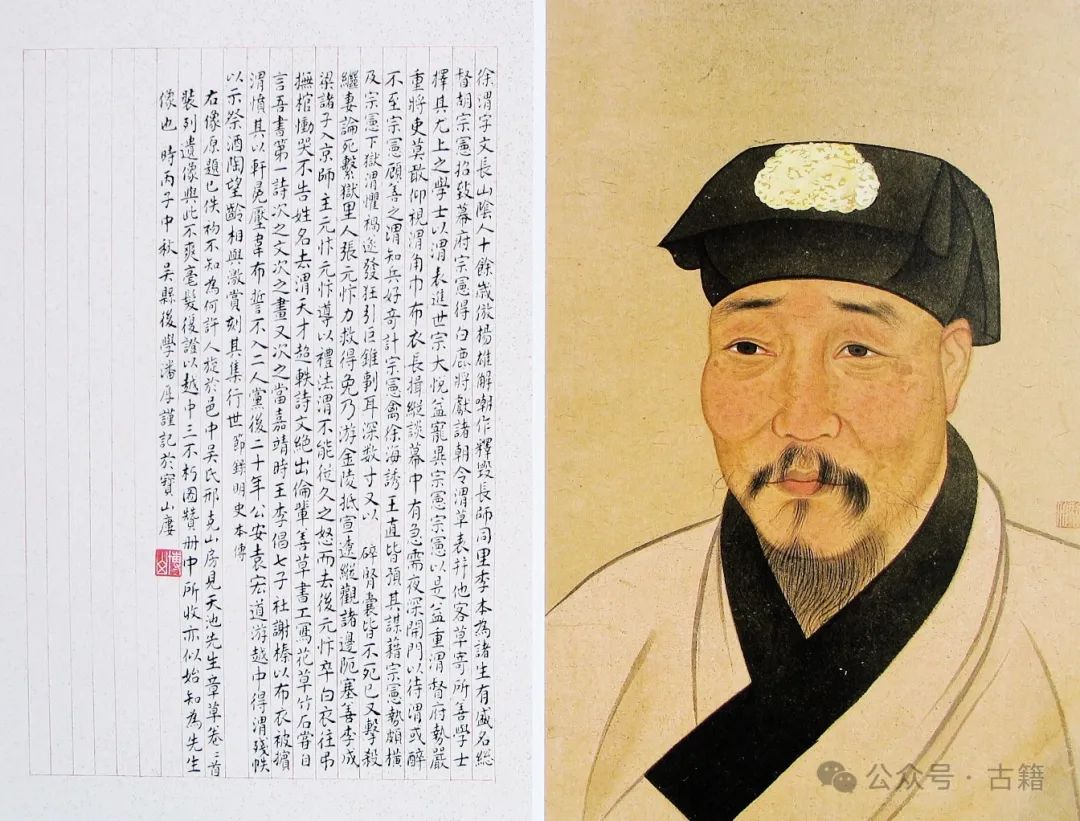 徐渭字文長山陰人十餘歲倣楊雄解嘲作釋毀長師同里季本為諸生有盛名總
督胡宗憲招致幕府宗憲得白鹿將獻諸朝令渭草表并他客草寄所善學士
擇其尤上之學士以渭表進世宗大悅益寵異宗憲宗憲以是益重渭督府勢嚴
重將吏莫敢仰視渭角巾布衣長揖縱談幕中有急需夜深開門以待渭或醉
不至宗憲顧善之渭知兵好奇計宗憲禽徐海誘王直皆預其謀藉宗憲勢頗橫
及宗憲下獄渭懼禍遂發狂引巨錐剚耳深数寸又以 碎腎囊皆不死已又擊殺
繼妻論死繫獄里人張元忭力救得免乃游金陵抵宣遼縱觀諸邊阨塞善李成
梁諸子入京師主元忭元忭導以禮法渭不能從久之怒而去後元忭卒白衣往弔
撫棺慟哭不告姓名去渭天才超軼詩文絕出倫輩善草書工寫花草竹石嘗自
言吾書第一詩次之文次之畫又次之當嘉靖時王李倡七子社謝榛以布衣被擯
渭憤其以軒冕壓韋布誓不入二人黨後二十年公安袁宏道游越中得渭殘帙
以示祭酒陶望齡相與激賞刻其集行世 節錄明史本傳
右像原題已佚初不知為何許人旋於邑中吳氏邢克山房見天池先生章草卷首
裝列遺像與此不爽毫髮後證以越中三不朽圖贊册中所收亦似始知為先生
像也 時丙子中秋吳縣後學潘厚謹記於寶山廔
博文
公众号·古籍